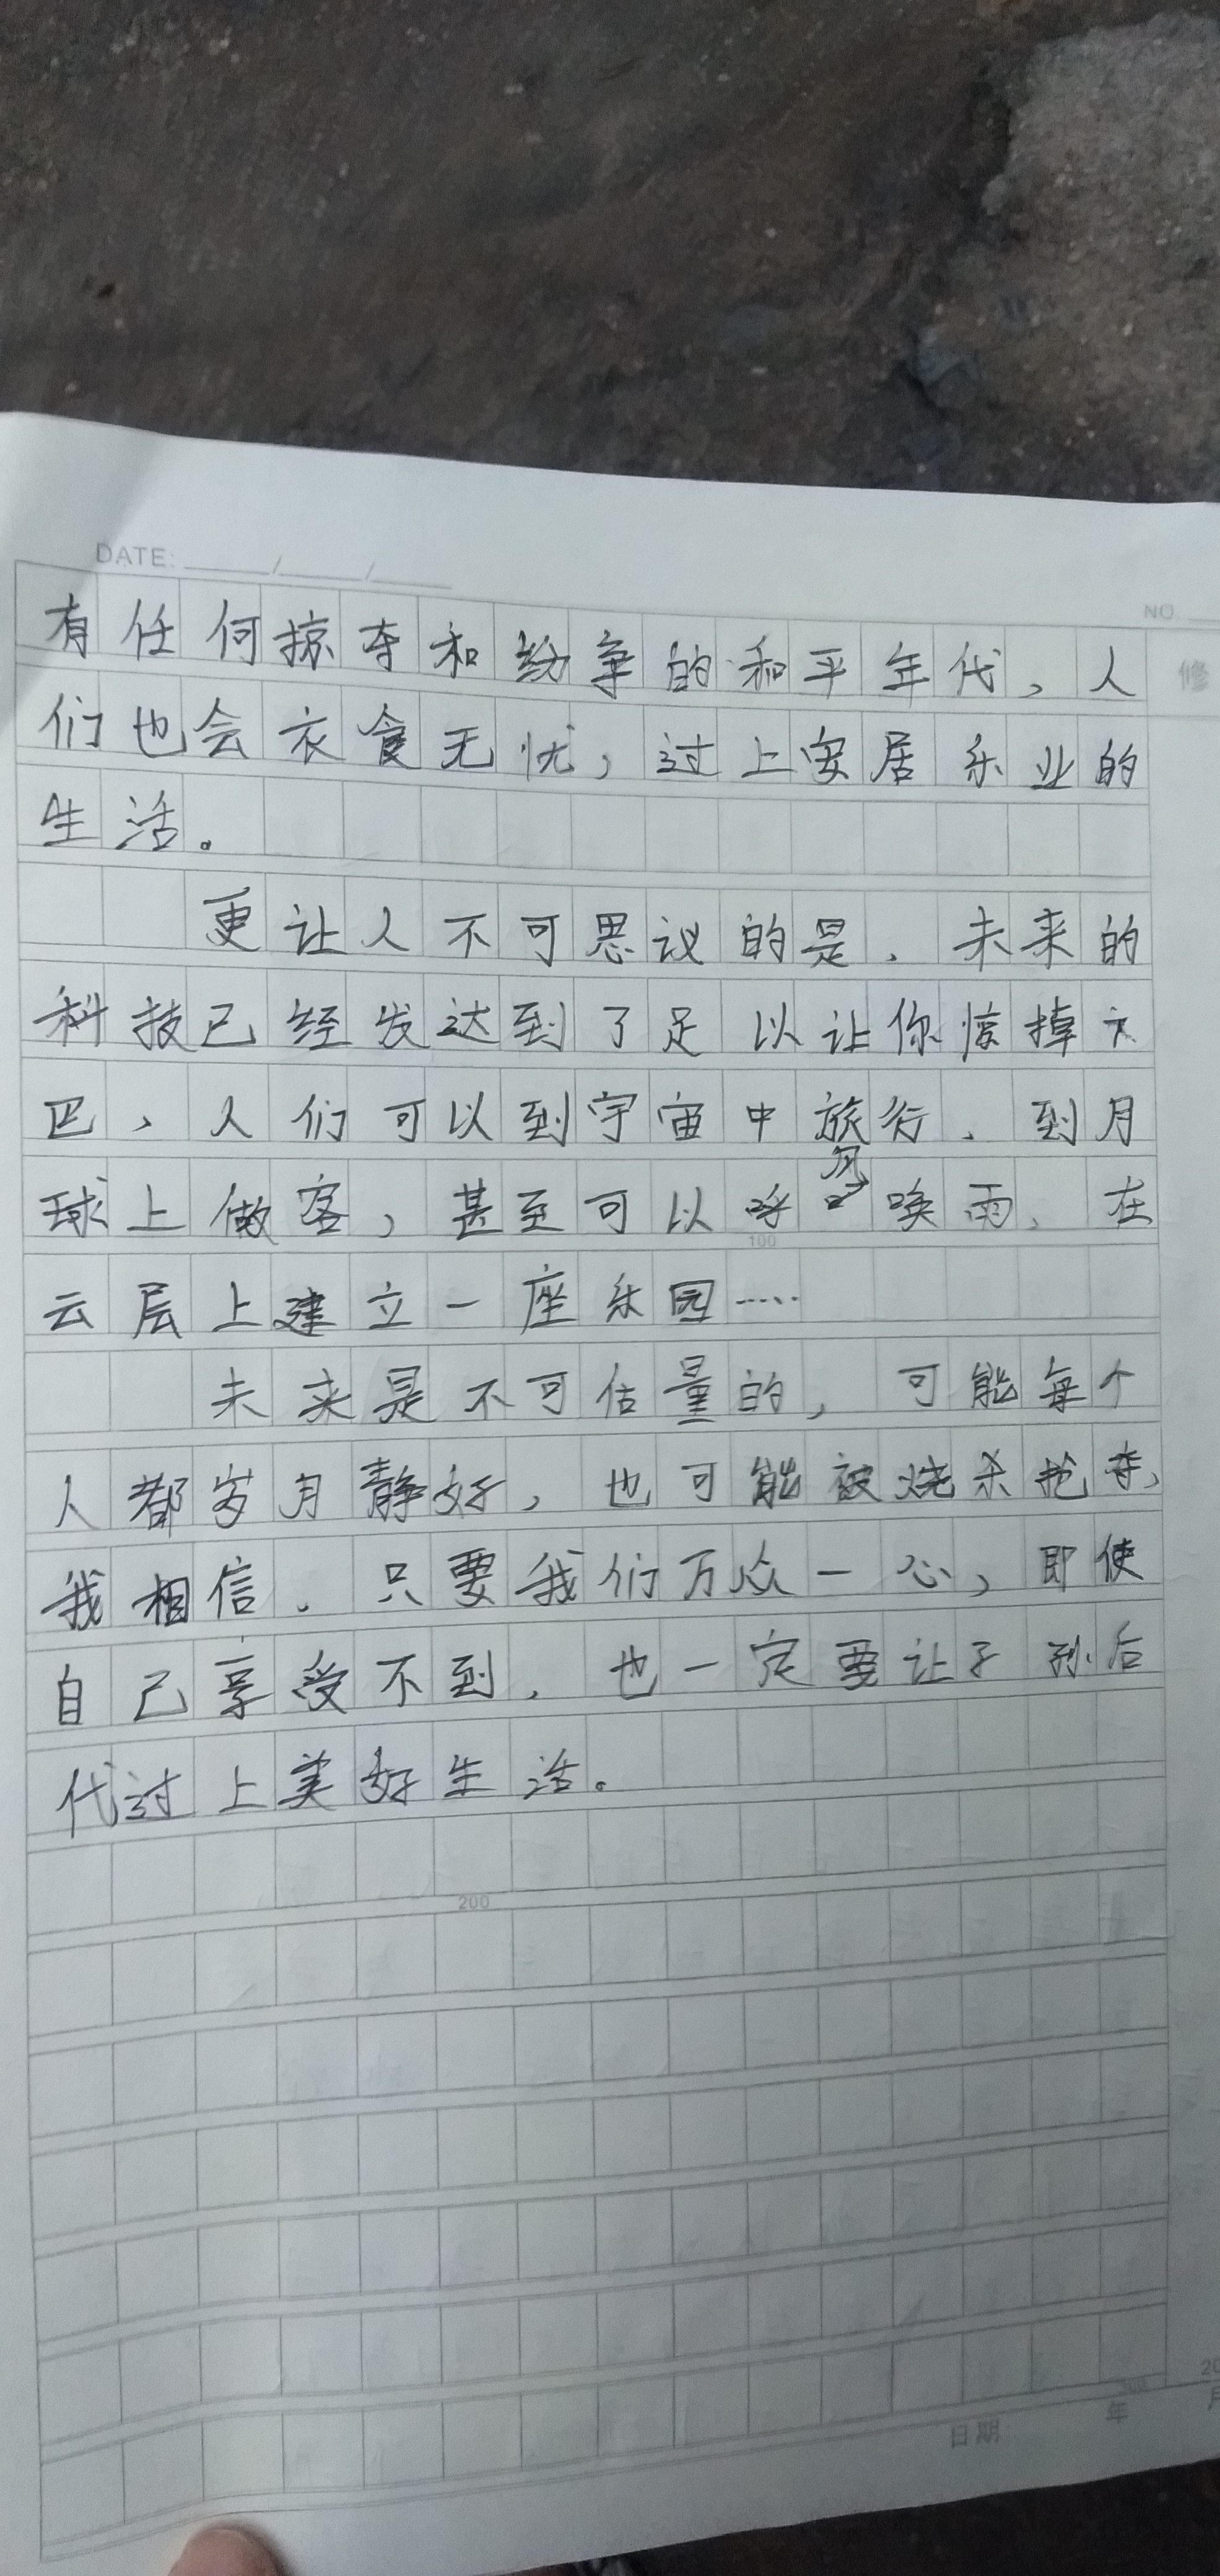 DATE: ____/____/____
NO.
有任何掠夺和纷争的和平年代，人
修
们也会衣食无忧，过上安居乐业的
生活。
更让人不可思议的是，未来的
科技已经发达到了足以让你惊掉大
巴，人们可以到宇宙中旅行，到月
球上做客，甚至可以呼风唤雨，在
100
云层上建立一座乐园……
未来是不可估量的，可能每个
人都岁月静好，也可能被烧杀抢夺，
我相信，只要我们万众一心，即使
自己享受不到，也一定要让子孙后
代过上美好生活。
200
日期: 年 月